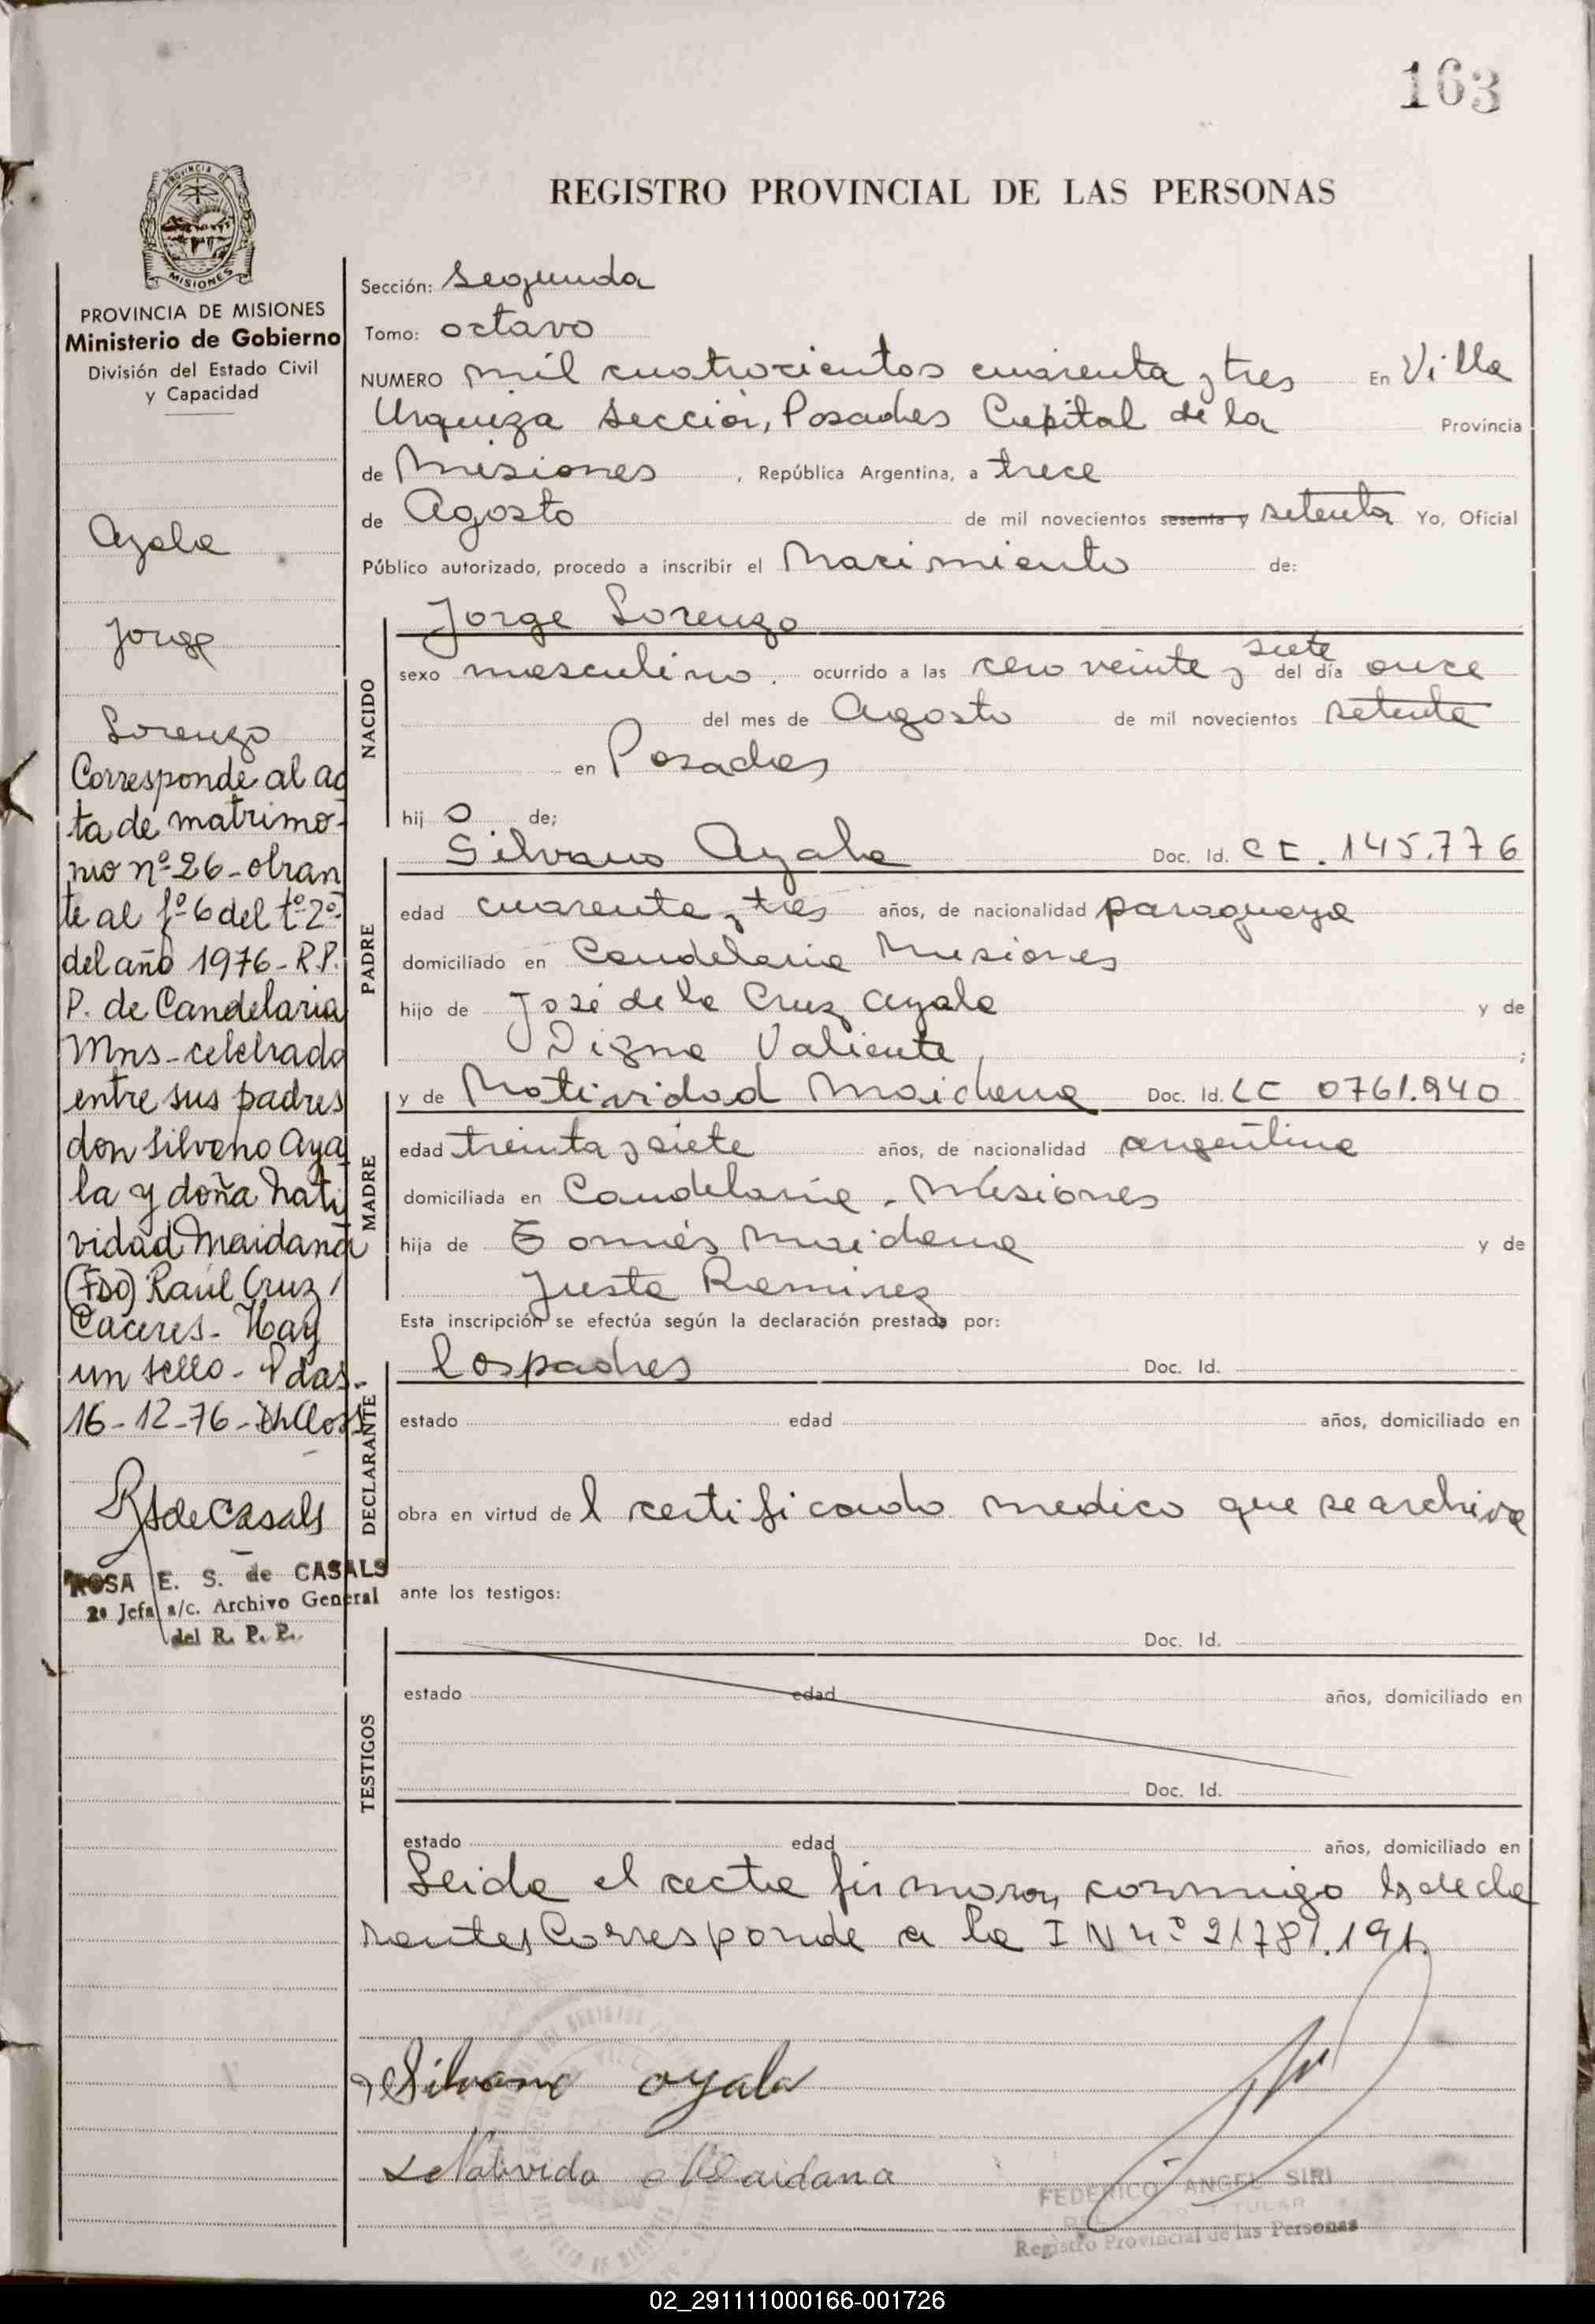 163
REGISTRO PROVINCIAL DE LAS PERSONAS
PROVINCIA DE
MISIONES
PROVINCIA DE MISIONES
Ministerio de Gobierno
División del Estado Civil
y Capacidad
Ayala
Jorge
Lorenzo
Corresponde al ac
ta de matrimo-
nio nº 26 - obran
te al fº 6 del tº 2º
del año 1976 - R.P.
P. de Candelaria
Mns - celebrado
entre sus padres
don Silvano Aya
la y doña Nati
vidad Maidana
(Fdo) Raúl Cruz
Caceres - Hay
un sello - Pdas -
16 - 12 - 76 -
RSdeCasals
ROSA E. S. de CASALS
2º Jefa a/c. Archivo General
del R. P. P.
Sección: Segunda
Tomo: octavo
NUMERO mil cuatrocientos cuarenta y tres En Villa
Urquiza Sección, Posadas Capital de la Provincia
de Misiones , República Argentina, a trece
de Agosto de mil novecientos sesenta y setenta Yo, Oficial
Público autorizado, procedo a inscribir el Nacimiento de:
NACIDO
Jorge Lorenzo
sexo masculino. ocurrido a las cero veinte y siete del día once
del mes de Agosto de mil novecientos setenta
en Posadas
hij o de;
PADRE
Silvano Ayala Doc. Id. C I. 145.776
edad cuarenta y tres años, de nacionalidad paraguaya
domiciliado en Candelaria Misiones
hijo de José de la Cruz Ayala y de
Digna Valiente ;
MADRE
y de Natividad Maidana Doc. Id. LC 0761.940
edad treinta y siete años, de nacionalidad argentina
domiciliada en Candelaria - Misiones
hija de Tomás Maidana y de
Justa Ramirez
Esta inscripción se efectúa según la declaración prestada por:
DECLARANTE
Los padres Doc. Id.
estado edad años, domiciliado en
obra en virtud de l certificado medico que se archiva
ante los testigos:
TESTIGOS
Doc. Id.
estado edad años, domiciliado en
Doc. Id.
estado edad años, domiciliado en
Leida el acta firmaron conmigo los decla
rantes Corresponde a la I N nº 21781.191.
Silvano ayala
Nativida Maidana
FEDERICO ANGEL SIRI
TITULAR
Registro Provincial de las Personas
02_291111000166-001726